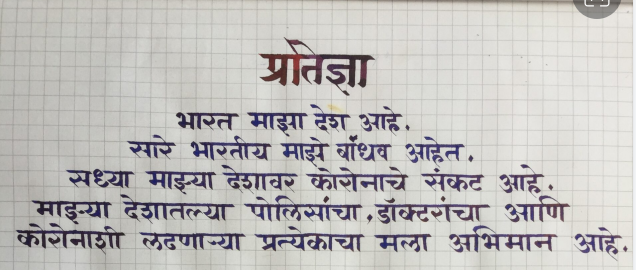 प्रतिज्ञा
भारत माझा देश आहे.
सारे भारतीय माझे बांधव आहेत.
सध्या माझ्या देशावर कोरोनाचे संकट आहे.
माझ्या देशातल्या पोलिसांचा, डॉक्टरांचा आणि
कोरोनाशी लढणाऱ्या प्रत्येकाचा मला अभिमान आहे.